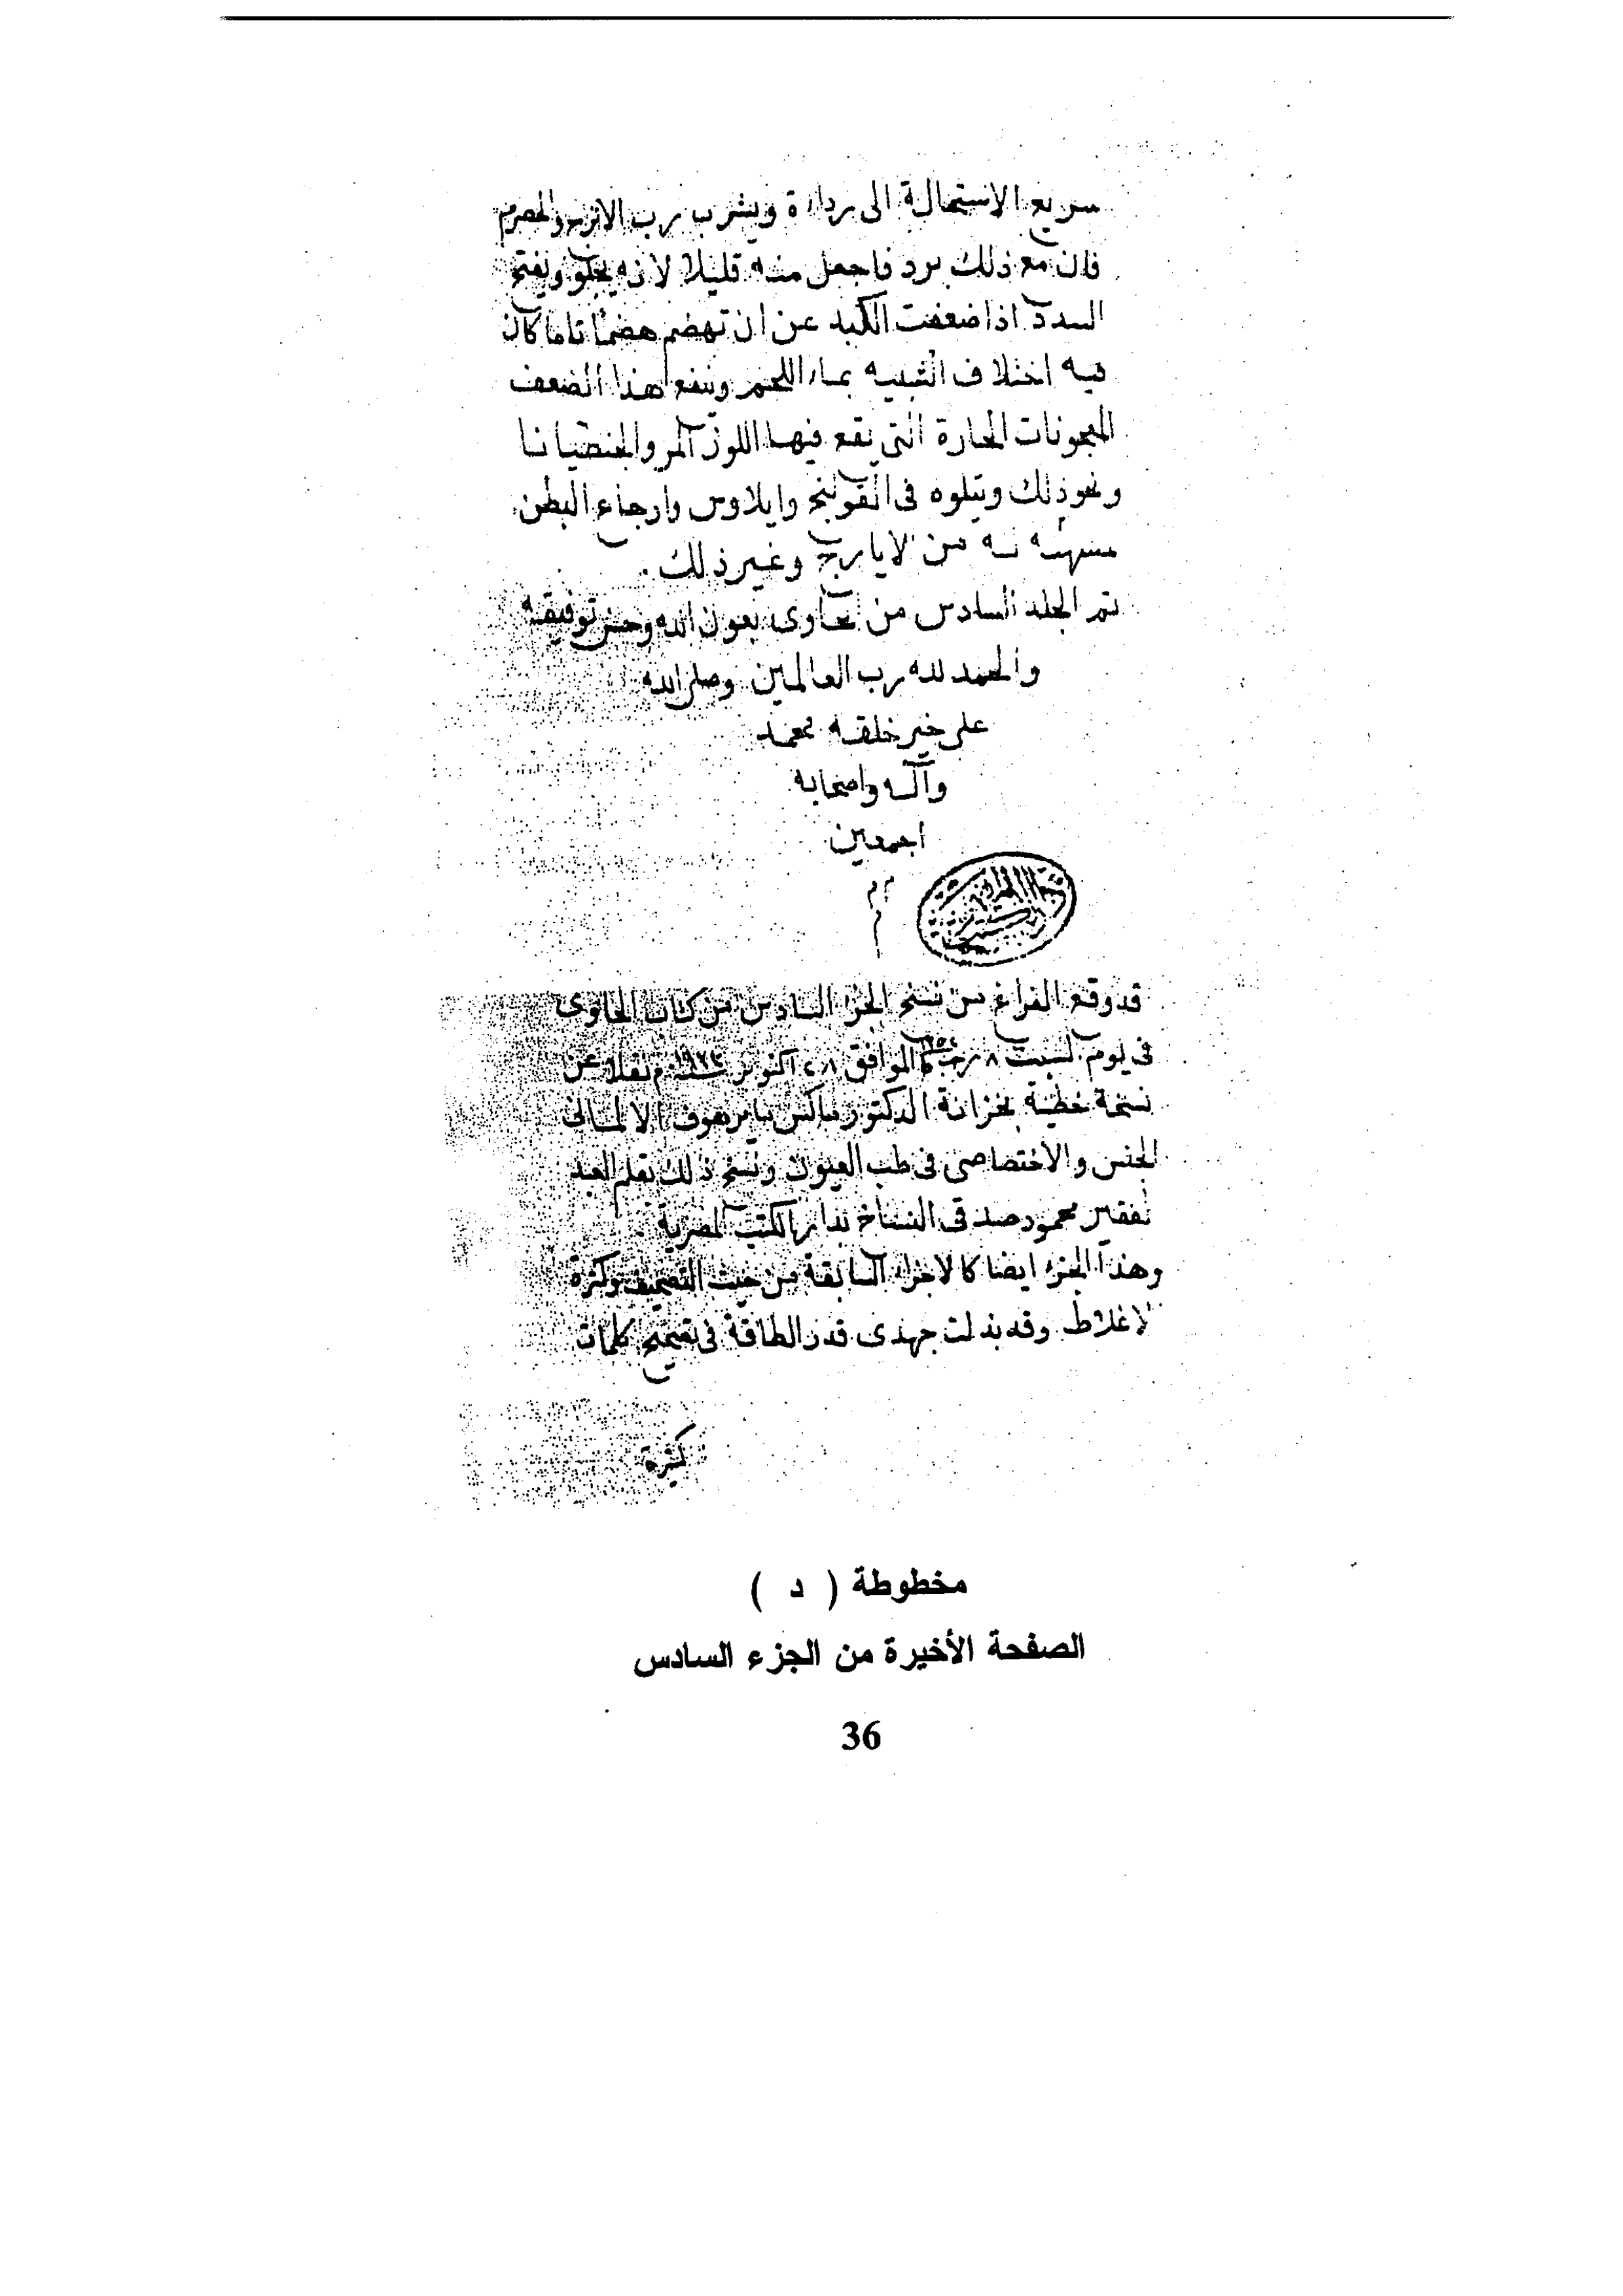 سريع الاستحالة الى رداءة ويشرب رب الاترج والحصرم
فان مع ذلك برد فاجعل منه قليلا لانه يجلو ويفتح
السدد اذا ضعفت الكبد عن ان تهضم هضما تاما كان
فيه اختلاف الشبيه بماء اللحم وينفع هذا الضعف
المعجونات الحارة التى يقع فيها اللوز المر والجنطيانا
ونحو ذلك ويتلوه فى القولنج وايلاوس واوجاع البطن
مسهلة من الايارج وغير ذلك .
تم الجلد السادس من الحاوى بعون الله وحسن توفيقه
والحمد لله رب العالمين وصلى الله
على خير خلقه محمد
وآله واصحابه
اجمعين
م م
قد وقع الفراغ من نسخ الجزء السادس من كتاب الحاوى
فى يوم السبت ٨ رجب الموافق ٢٨ اكتوبر سنة ١٩٣٣ م نقلا عن
نسخة خطية بخزانة الدكتور ماكس مايرهوف الالمانى
الجنس والاختصاصى فى طب العيون ونسخ ذلك بقلم العبد
الفقير محمود صدقى النساخ بدار الكتب المصرية .
وهذا الجزء ايضا كالاجزاء السابقة من حيث التصحيف وكثرة
الاغلاط وقد بذلت جهدى قدر الطاقة فى تصحيح كلمات
كثيرة
مخطوطة ( د )
الصفحة الأخيرة من الجزء السادس
36